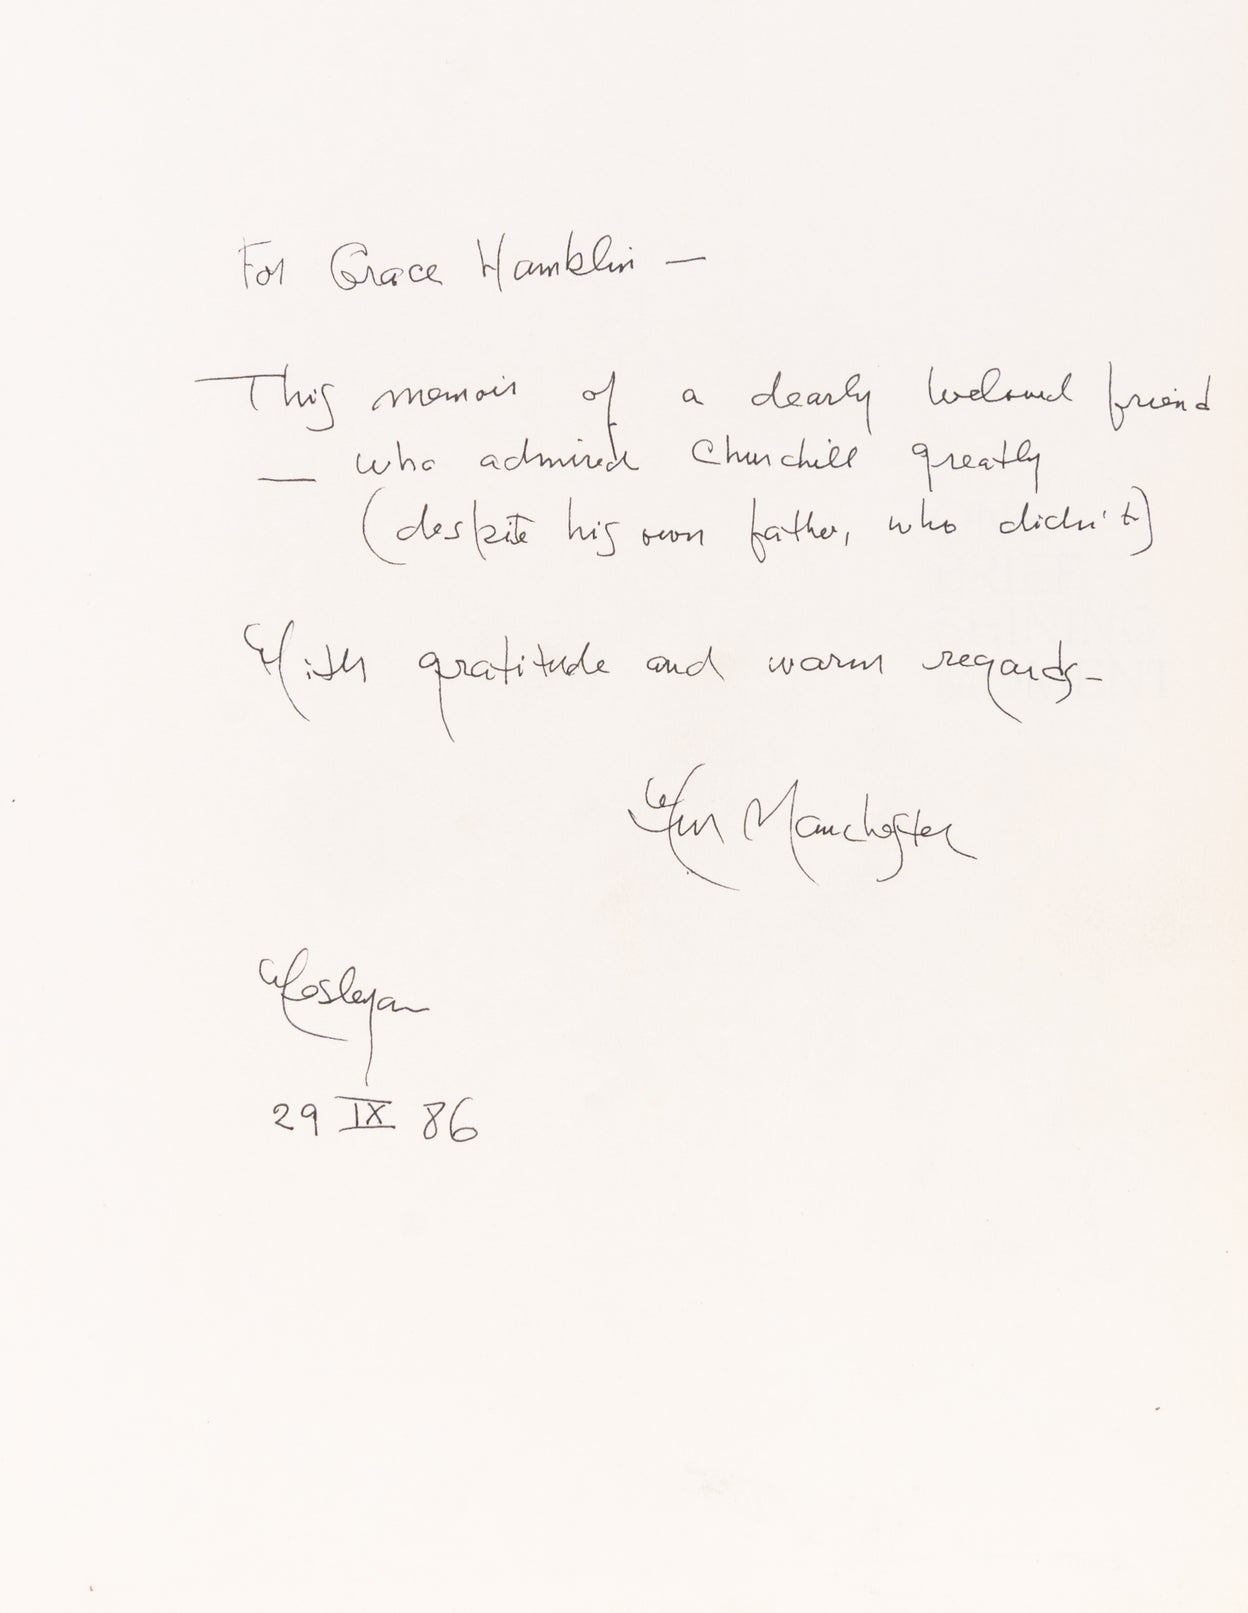 For Grace Hamblin —
This memoir of a dearly beloved friend
— who admired Churchill greatly
(despite his own father, who didn't)
With gratitude and warm regards—
Wm Manchester
Wesleyan
29 IX 86